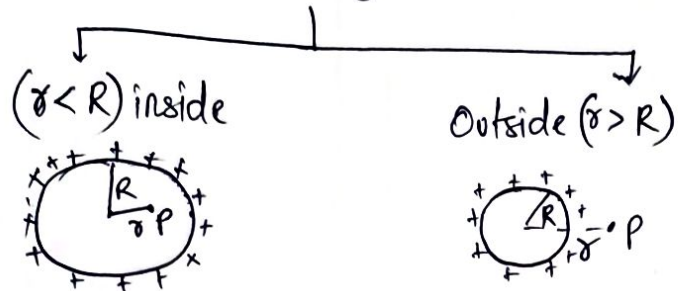 (r<R) inside
Outside (r>R)
R
r P
R
r P